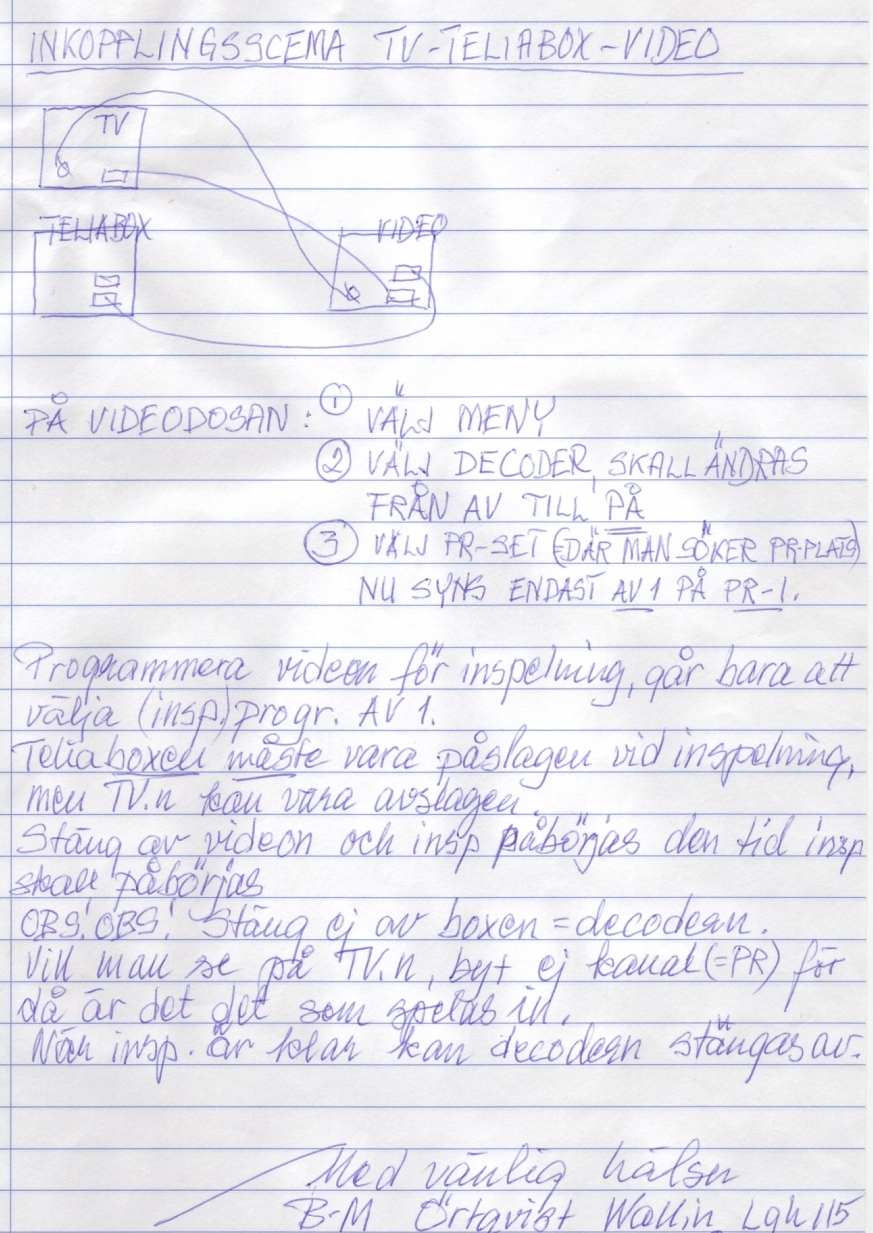 INKOPPLINGSSCEMA TV-TELIABOX-VIDEO
TV
TELIABOX
VIDEO
PÅ VIDEODOSAN: 1 VÄLJ MENY
2 VÄLJ DECODER, SKALL ÄNDRAS
FRÅN AV TILL PÅ
3 VÄLJ PR-SET (DÄR MAN SÖKER PR-PLATS)
NU SYNS ENDAST AV1 PÅ PR-1.
Programmera videon för inspelning, går bara att
välja (insp.) progr. AV 1.
Teliaboxen måste vara påslagen vid inspelning,
men TV.n kan vara avslagen.
Stäng av videon och insp påbörjas den tid insp
skall påbörjas
OBS! OBS! Stäng ej av boxen = decodern.
Vill man se på TV.n, byt ej kanal (=PR) för
då är det det som spelas in.
När insp. är klar kan decodern stängas av.
Med vänlig hälsn
B-M Örtqvist Wallin Lgh 115